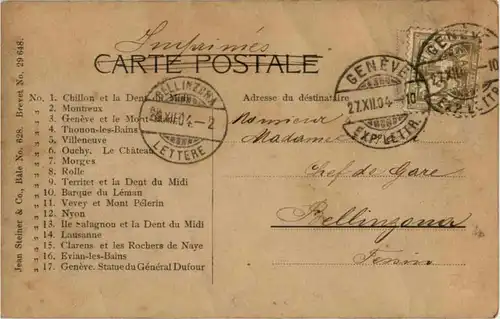 Imprimés
CARTE POSTALE
Jean Steiner & Co., Bâle No. 628. Brevet No. 29648.
No. 1. Chillon et la Dent du Midi
" 2. Montreux
" 3. Genève et le Mont
" 4. Thonon-les-Bains
" 5. Villeneuve
" 6. Ouchy. Le Château
" 7. Morges
" 8. Rolle
" 9. Territet et la Dent du Midi
" 10. Barque du Léman
" 11. Vevey et Mont Pélerin
" 12. Nyon
" 13. Ile Salagnon et la Dent du Midi
" 14. Lausanne
" 15. Clarens et les Rochers de Naye
" 16. Evian-les-Bains
" 17. Genève. Statue du Général Dufour
BELLINZONA
XII.04.-2
LETTERE
Adresse du destinataire
GENÈVE
27.XII.04.-10
EXP. LETTR.
GENÈVE
27.XII.04.-10
EXP. LETTR.
Monsieur
Madame
Chef de Gare
Bellinzona
Tessin